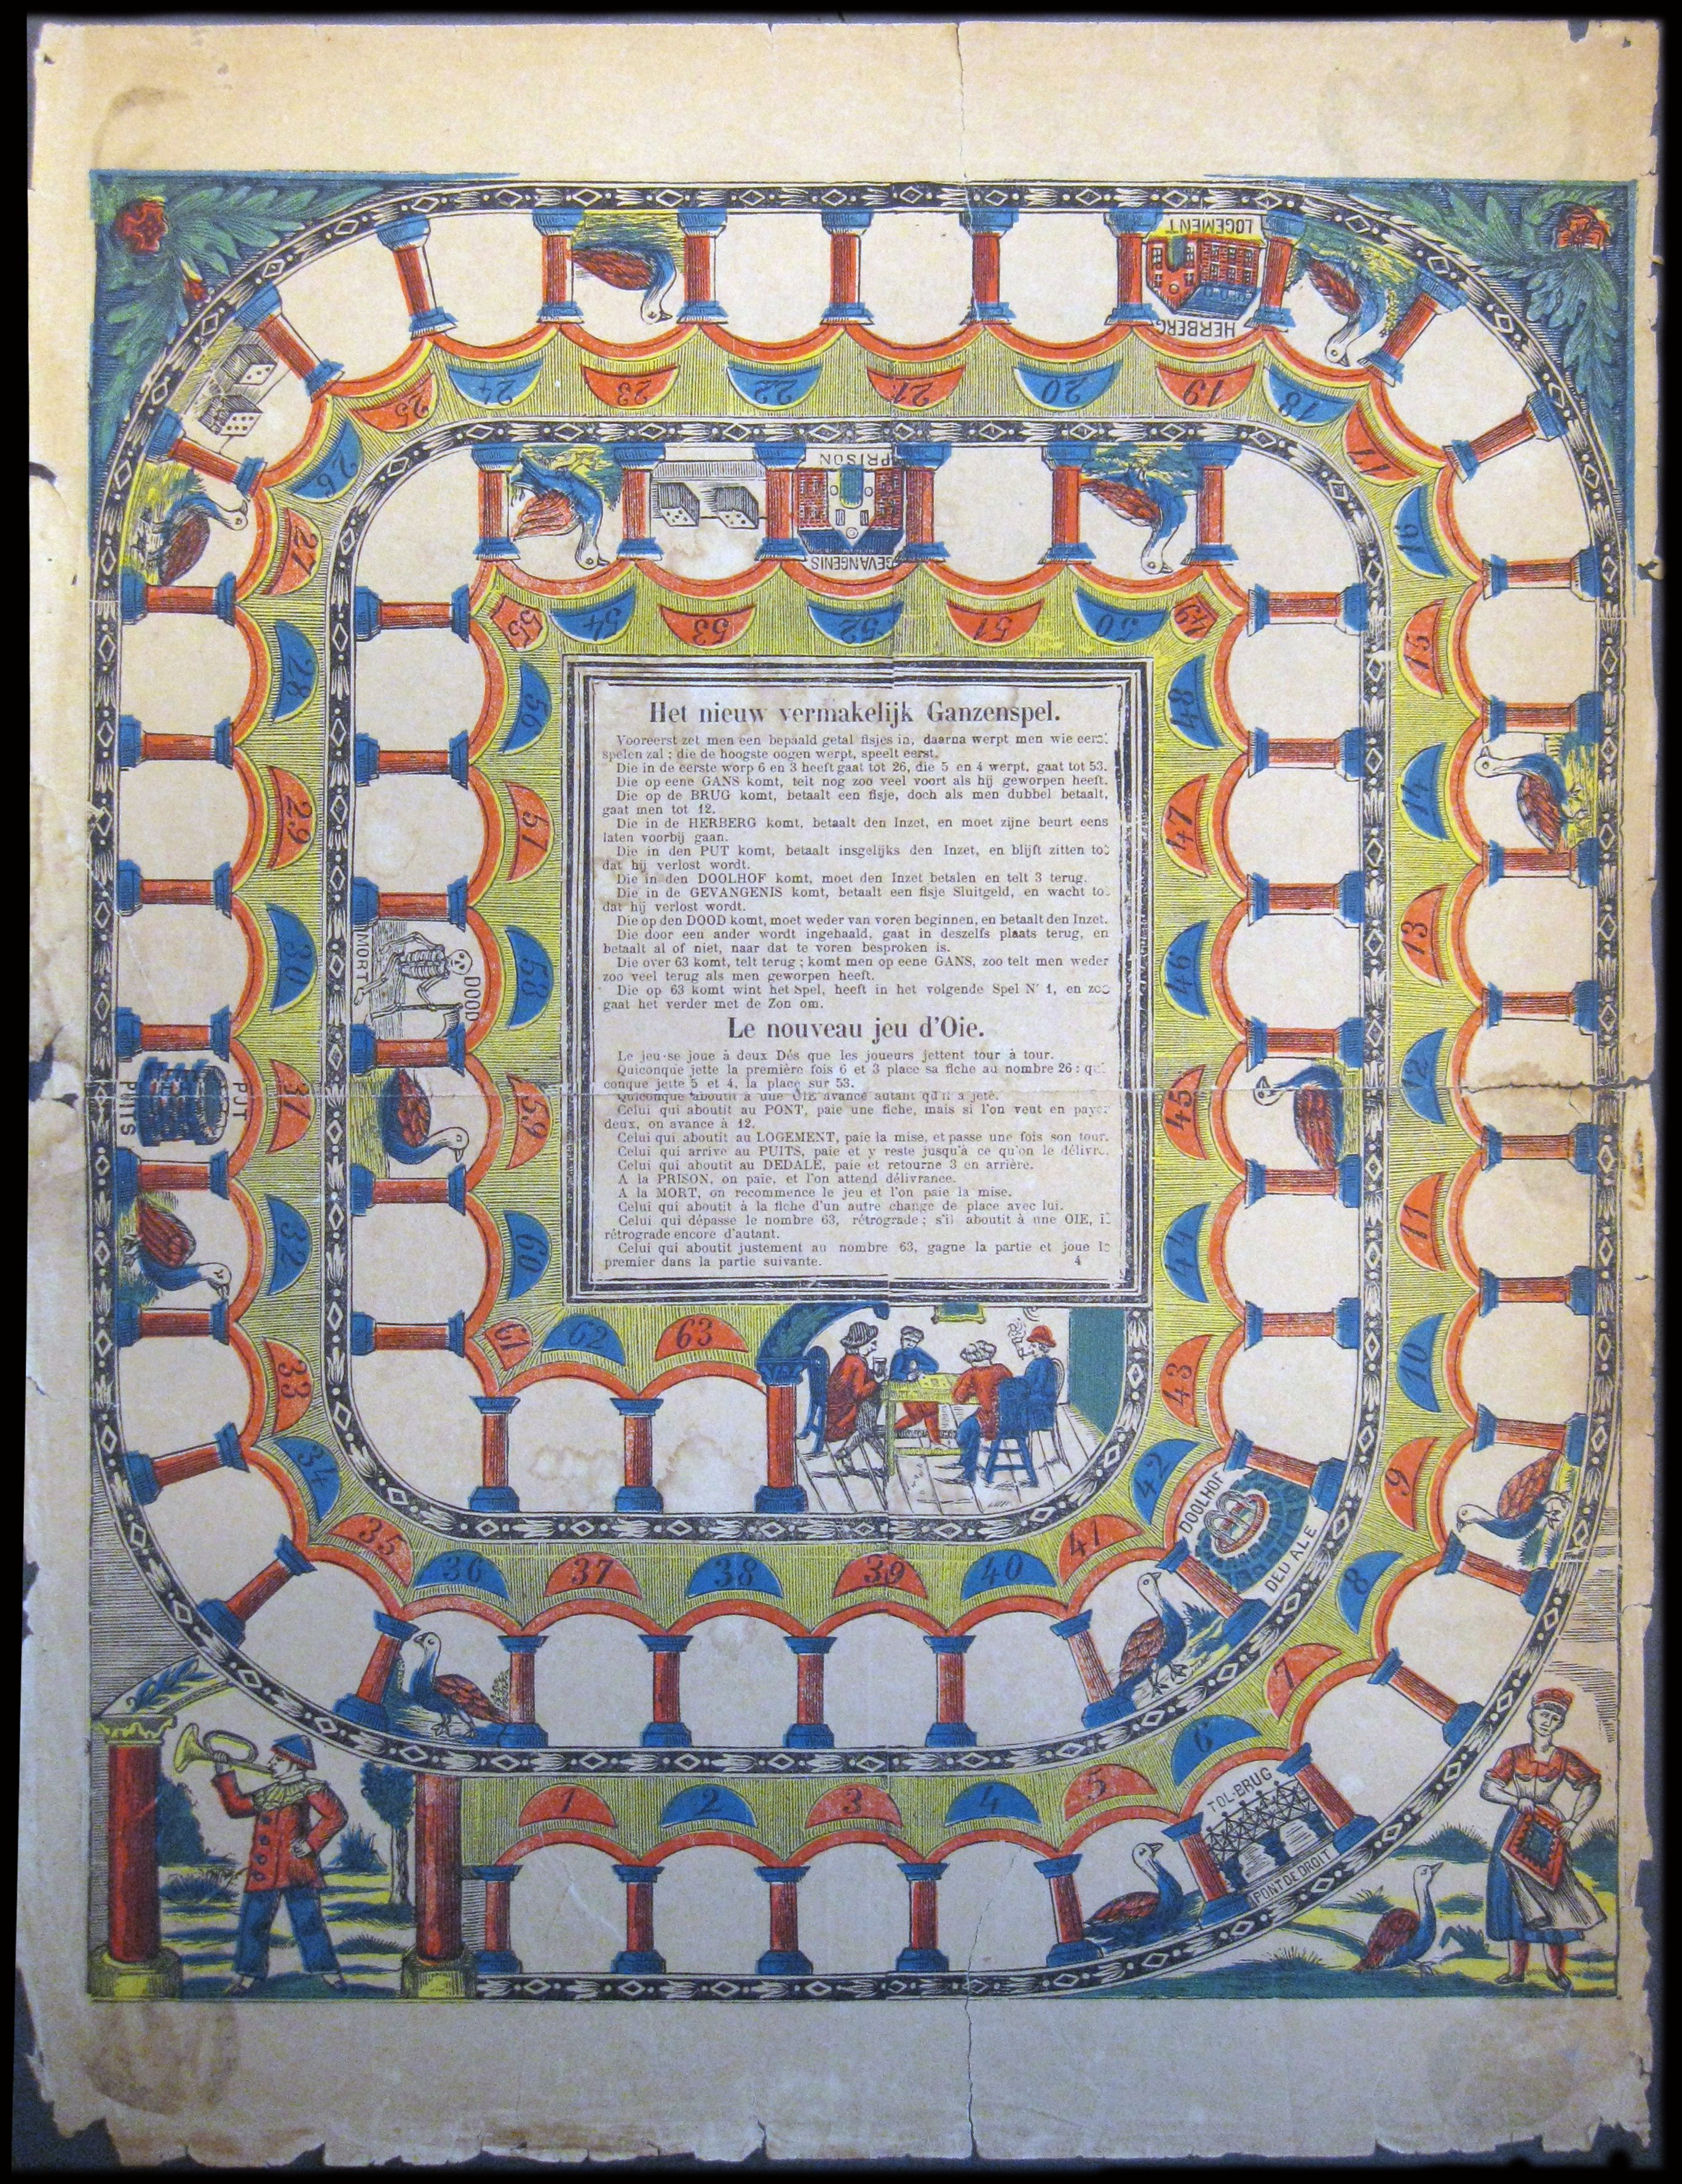 Het nieuw vermakelijk Ganzenspel.
Vooreerst zet men een bepaald getal fisjes in, daarna werpt men wie eerst
spelen zal ; die de hoogste oogen werpt, speelt eerst.
Die in de eerste worp 6 en 3 heeft gaat tot 26, die 5 en 4 werpt, gaat tot 53.
Die op eene GANS komt, telt nog zoo veel voort als hij geworpen heeft.
Die op de BRUG komt, betaalt een fisje, doch als men dubbel betaalt,
gaat men tot 12.
Die in de HERBERG komt, betaalt den Inzet, en moet zijne beurt eens
laten voorbij gaan.
Die in den PUT komt, betaalt insgelijks den Inzet, en blijft zitten tot
dat hij verlost wordt.
Die in den DOOLHOF komt, moet den Inzet betalen en telt 3 terug.
Die in de GEVANGENIS komt, betaalt een fisje Sluitgeld, en wacht to
dat hij verlost wordt.
Die op den DOOD komt, moet weder van voren beginnen, en betaalt den Inzet.
Die door een ander wordt ingehaald, gaat in deszelfs plaats terug, en
betaalt al of niet, naar dat te voren besproken is.
Die over 63 komt, telt terug ; komt men op eene GANS, zoo telt men weder
zoo veel terug als men geworpen heeft.
Die op 63 komt wint het Spel, heeft in het volgende Spel N° 1, en zoo
gaat het verder met de Zon om.
Le nouveau jeu d'Oie.
Le jeu se joue à deux Dés que les joueurs jettent tour à tour.
Quiconque jette la première fois 6 et 3 place sa fiche au nombre 26 : qui
conque jette 5 et 4, la place sur 53.
Quiconque aboutit à une OIE avance autant qu'il a jeté.
Celui qui aboutit au PONT, paie une fiche, mais si l'on veut en payer
deux, on avance à 12.
Celui qui aboutit au LOGEMENT, paie la mise, et passe une fois son tour.
Celui qui arrive au PUITS, paie et y reste jusqu'à ce qu'on le délivre.
Celui qui aboutit au DEDALE, paie et retourne 3 en arrière.
A la PRISON, on paie, et l'on attend délivrance.
A la MORT, on recommence le jeu et l'on paie la mise.
Celui qui aboutit à la fiche d'un autre change de place avec lui.
Celui qui dépasse le nombre 63, rétrograde ; s'il aboutit à une OIE, il
rétrograde encore d'autant.
Celui qui aboutit justement au nombre 63, gagne la partie et joue le
premier dans la partie suivante.
4
1
2
3
4
5
6
TOL-BRUG
PONT DE DROIT
7
8
9
10
11
12
13
14
15
16
17
18
19
HERBERG
LOGEMENT
20
21
22
23
24
25
26
27
28
29
30
31
PUT
PUITS
32
33
34
35
36
37
38
39
40
41
42
DOOLHOF
DEDALE
43
44
45
46
47
48
49
50
51
52
GEVANGENIS
PRISON
53
54
55
56
57
58
DOOD
MORT
59
60
61
62
63